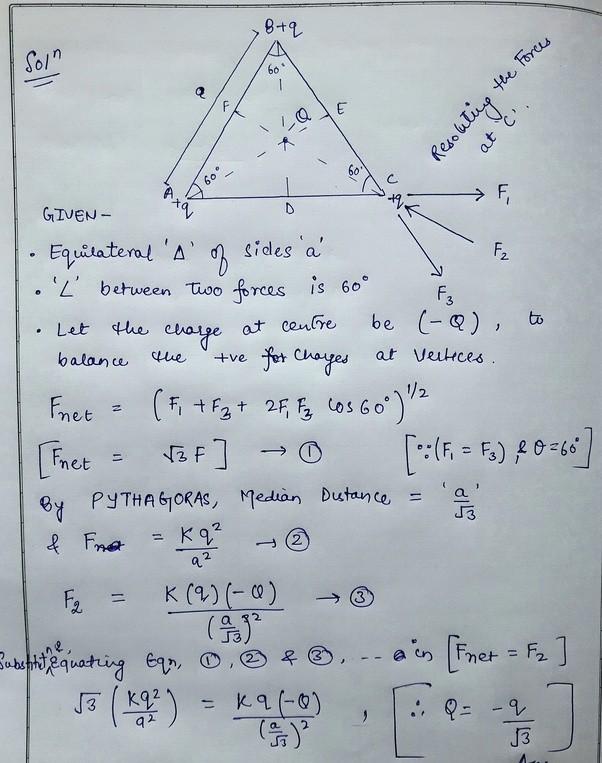 Solⁿ
B+q
60°
a
F
E
Q
60°
60°
A
+q
D
C
+q
F₁
F₂
F₃
Resolving the Forces
at 'C'.
GIVEN -
• Equilateral 'Δ' of sides 'a'
• '∠' between two forces is 60°
• Let the charge at centre be (-Q), to
balance the +ve charges at vertices.
Fnet = (F₁ + F₃ + 2F₁F₃ cos 60°)^1/2
[Fnet = √3 F] → ① [∵(F₁ = F₃) & θ=60°]
By PYTHAGORAS, Median Distance = 'a/√3'
& F = Kq²/a² → ②
F₂ = K(q)(-Q)/(a/√3)² → ③
Equating Eqn, ①, ② & ③, -- in [Fnet = F₂]
√3 (Kq²/a²) = Kq(-Q)/(a/√3)² , [∴ Q = -q/√3]